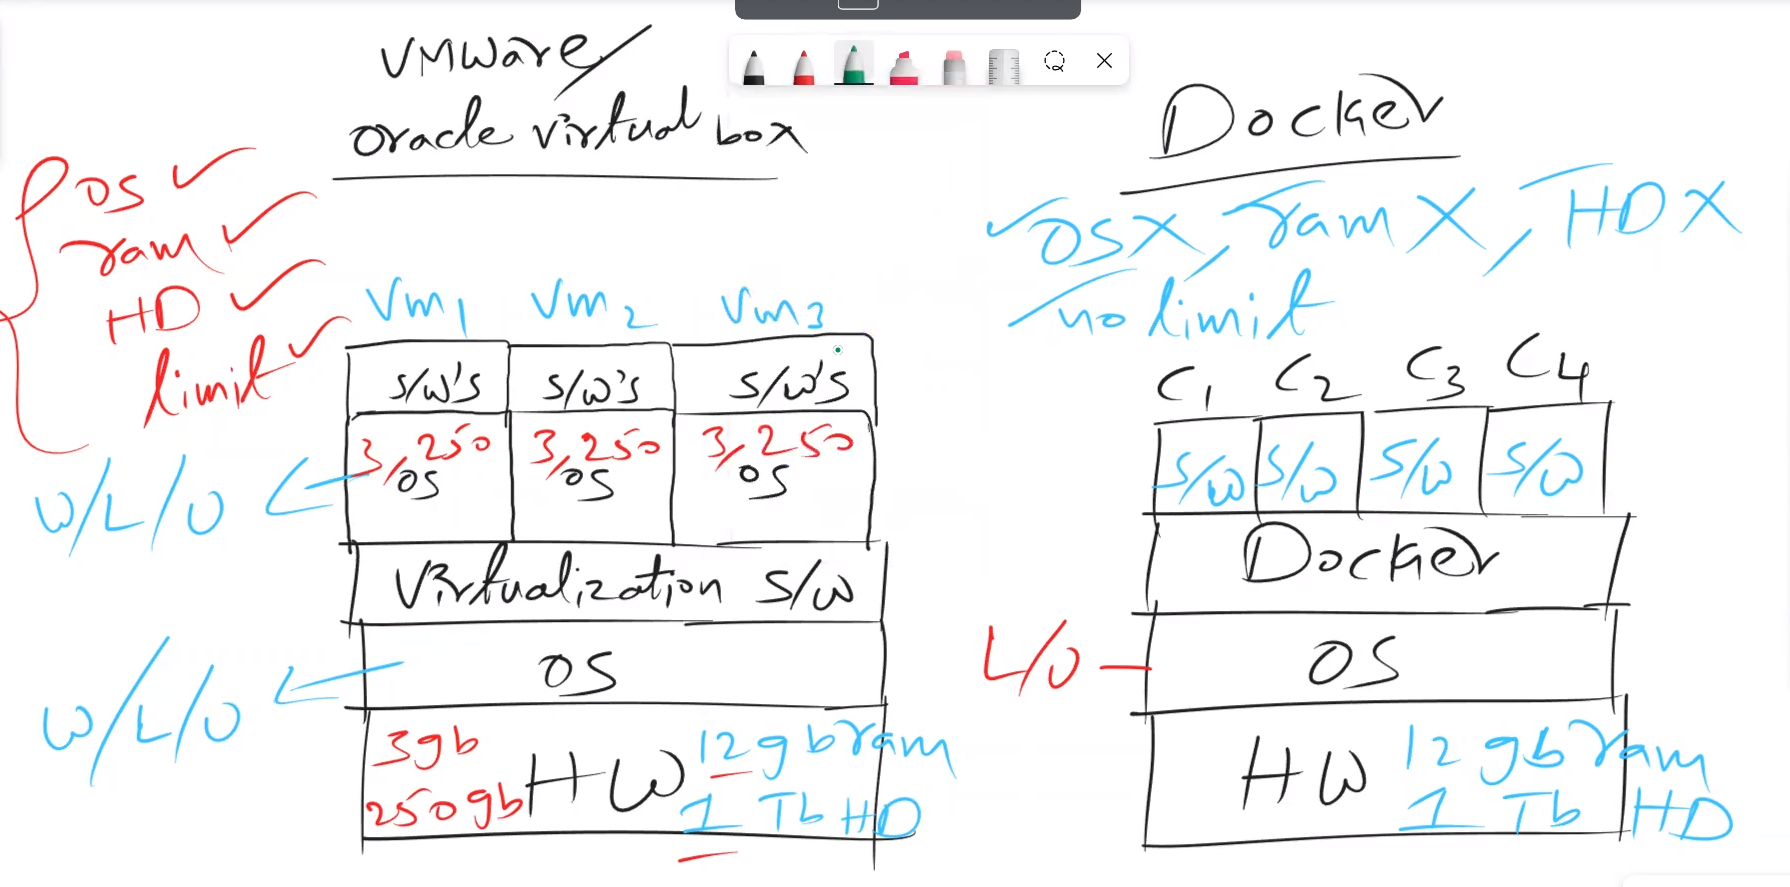 VMWare/
Oracle Virtual box
OS ✓
ram ✓
HD ✓
limit ✓
Vm1 Vm2 Vm3
S/W'S S/W'S S/W'S
3,250 3,250 3,250
OS OS OS
W/L/U
Virtualization S/W
W/L/U
OS
3gb
250gb
HW
12gb ram
1 Tb HD
Docker
✓OSX, ram X, HD X
no limit
C1 C2 C3 C4
S/W S/W S/W S/W
Docker
L/U
OS
HW
12 gb ram
1 Tb HD